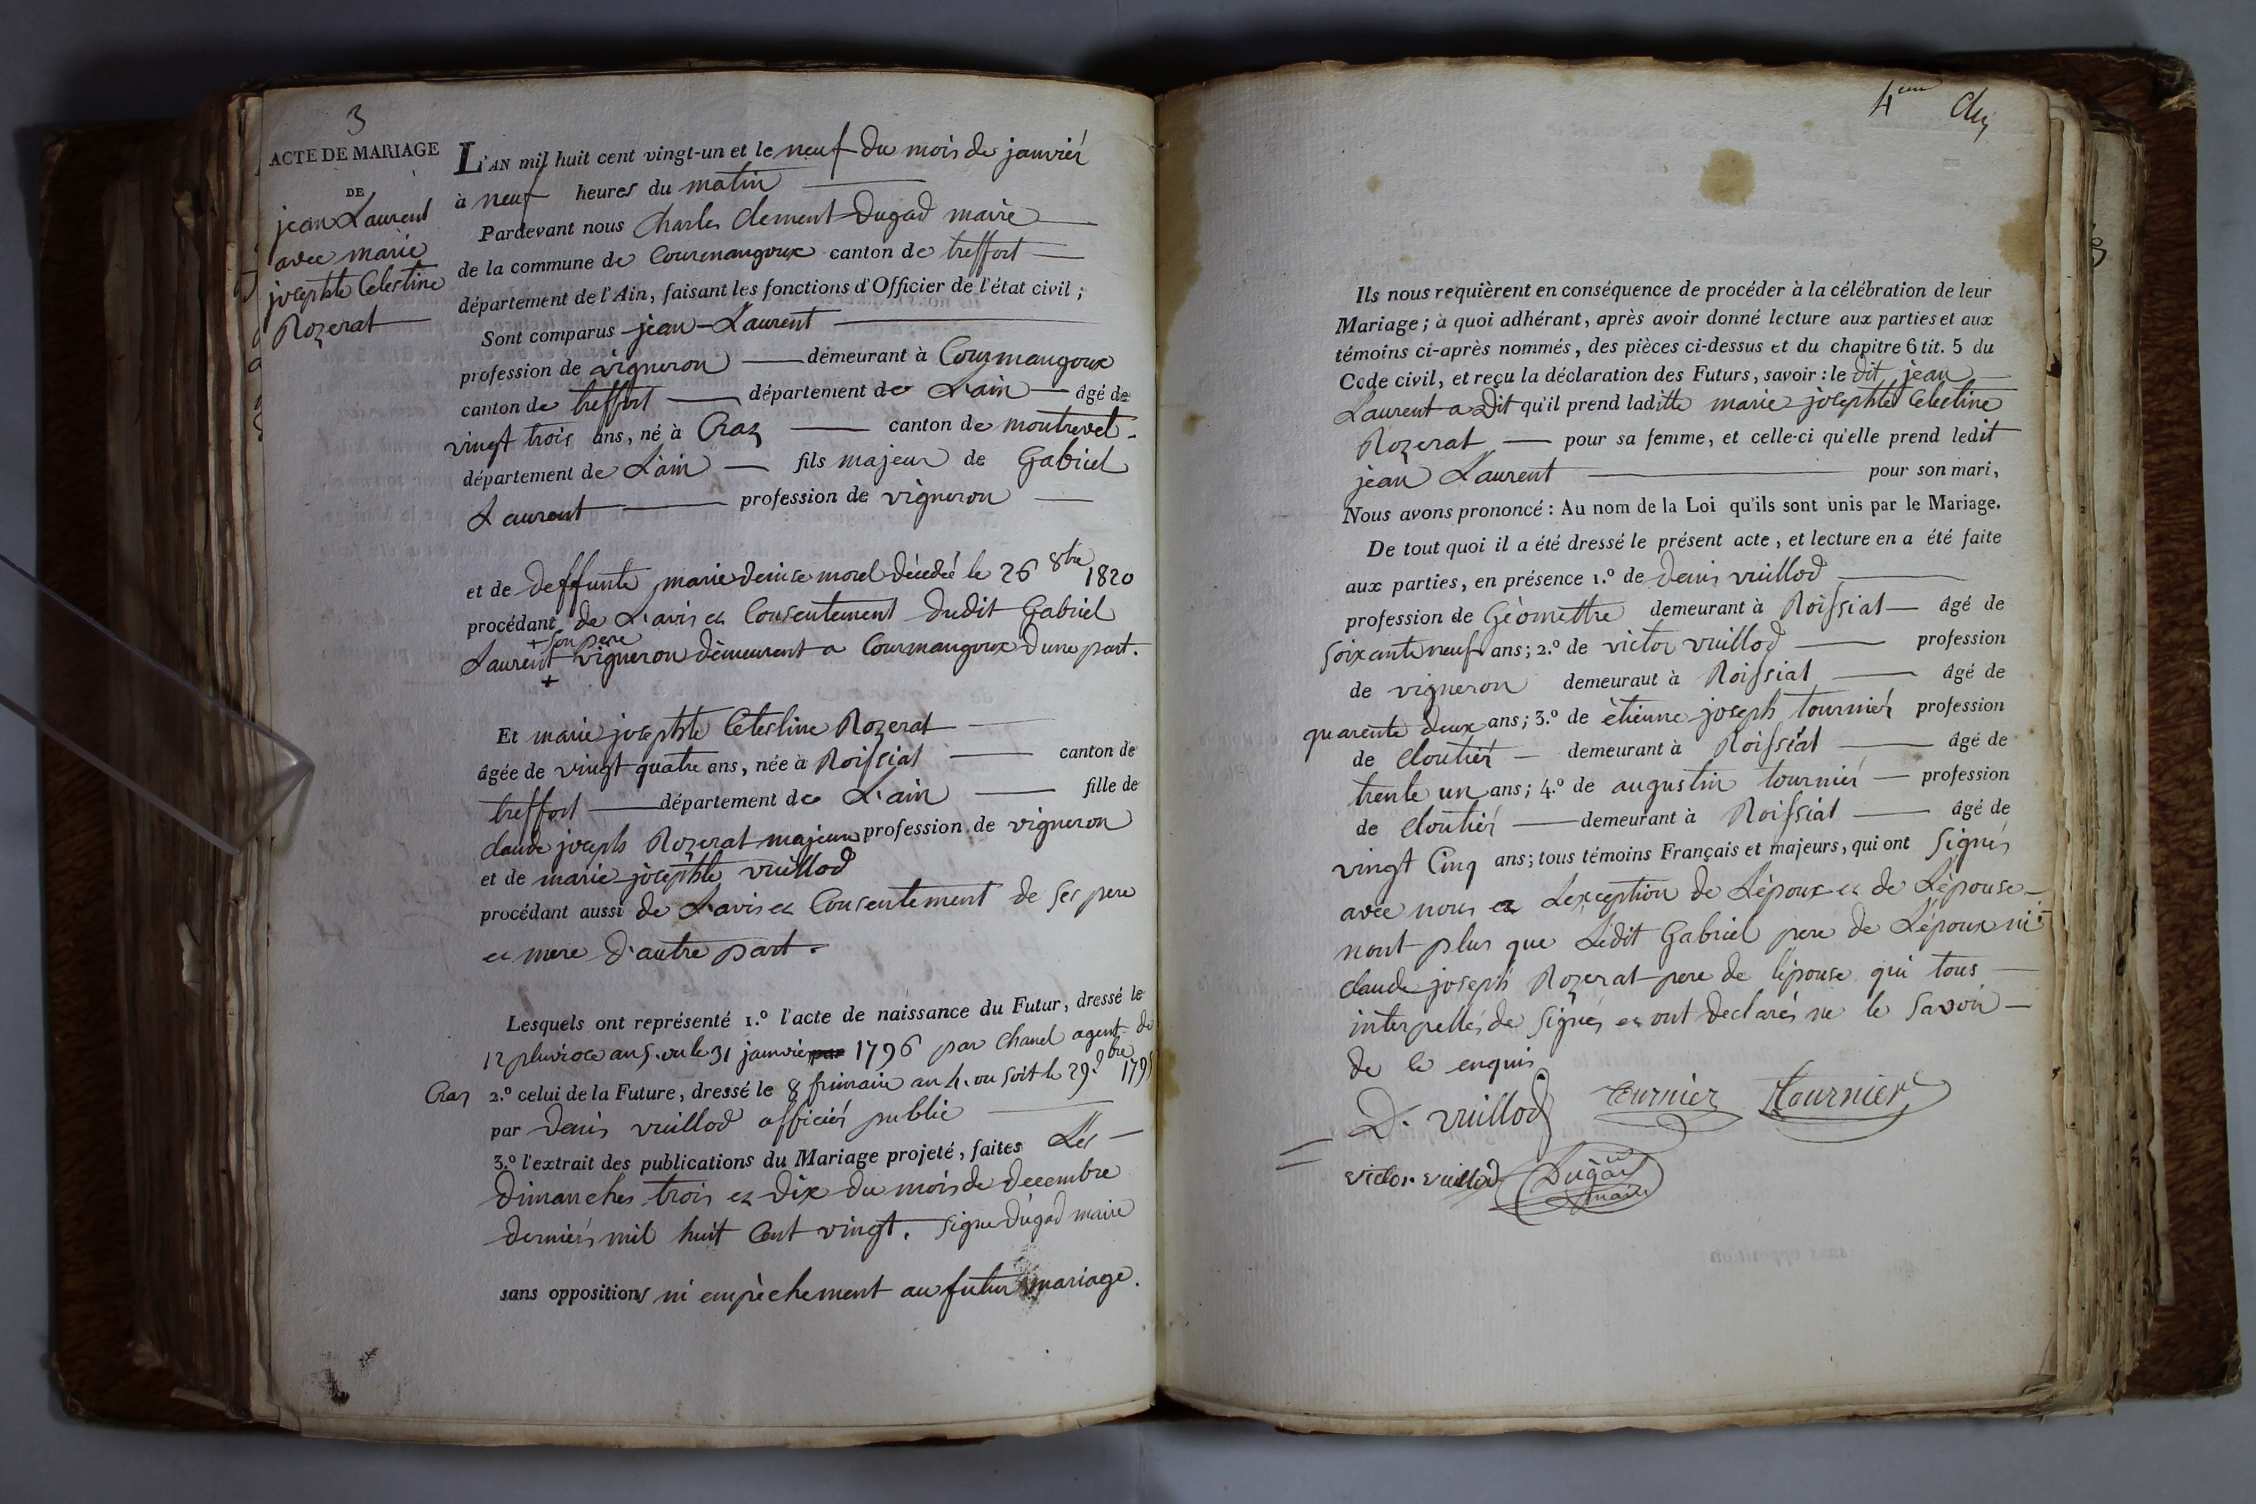 3
ACTE DE MARIAGE
DE
jean Laurent
avec marie
josephte Celestine
Rozerat
L'AN mil huit cent vingt-un et le neuf du mois de janvier
à neuf heures du matin
Pardevant nous Charles Clement Dugad maire
de la commune de Courmangoux canton de treffort
département de l'Ain, faisant les fonctions d'Officier de l'état civil ;
Sont comparus jean Laurent
profession de vigneron demeurant à Courmangoux
canton de treffort département de L'ain âgé de
vingt trois ans, né à Craz canton de montrevel
département de L'ain fils majeur de Gabriel
Laurent profession de vigneron
et de deffunte marie denise morel décedée le 26 8bre 1820
procédant de L'avis et Consentement dudit Gabriel
+ son pere
Laurent vigneron demeurant a Courmangoux d'une part.
+
Et marie josephte Celestine Rozerat
âgée de vingt quatre ans, née à Roissiat canton de
treffort département de L'ain fille de
claude joseph Rozerat majeure profession de vigneron
et de marie josephte vuillod
procédant aussi de L'avis et Consentement de ses pere
et mere d'autre part.
Lesquels ont représenté 1.º l'acte de naissance du Futur, dressé le
12 pluviose an 5. ou le 31 janvier par 1796 par Chanel agent de
Cras 2.º celui de la Future, dressé le 8 frimaire an 4. ou soit le 29. 9bre 1795
par Denis vuillod officier public
3.º l'extrait des publications du Mariage projeté, faites Les
dimanches trois et dix du mois de decembre
derniers mil huit Cent vingt. signé dugad maire
sans oppositions ni empèchement au futur mariage.
4eme
Ils nous requièrent en conséquence de procéder à la célébration de leur
Mariage ; à quoi adhérant, après avoir donné lecture aux parties et aux
témoins ci-après nommés, des pièces ci-dessus et du chapitre 6 tit. 5 du
Code civil, et reçu la déclaration des Futurs, savoir : le dit jean
Laurent a dit qu'il prend laditte marie josephte Celestine
Rozerat pour sa femme, et celle-ci qu'elle prend ledit
jean Laurent pour son mari,
Nous avons prononcé : Au nom de la Loi qu'ils sont unis par le Mariage.
De tout quoi il a été dressé le présent acte, et lecture en a été faite
aux parties, en présence 1.º de denis vuillod
profession de Géomettre demeurant à Roissiat âgé de
soixante neuf ans ; 2.º de victor vuillod profession
de vigneron demeuraut à Roissiat âgé de
quarente deux ans ; 3.º de ètienne joseph tournier profession
de Cloutier demeurant à Roissiat âgé de
trente un ans ; 4.º de augustin tournier profession
de Cloutier demeurant à Roissiat âgé de
vingt Cinq ans ; tous témoins Français et majeurs, qui ont signés
avec nous et Lexception de Lépoux et de Lépouse
nont plus que Ledit Gabriel pere de Lépoux ni
claude joseph Rozerat pere de lépouse qui tous
interpellés de signés et ont declarés ne le savoir
de ce enquis
D. vuillod tournier Tournier
victor vuillod Dugad
maire